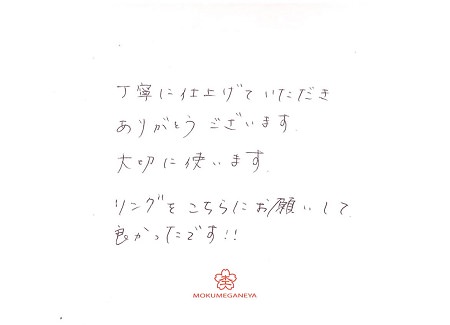 丁寧に仕上げていただき
ありがとうございます.
大切に使います.
リングをこちらにお願いして
良かったです!!
MOKUMEGANEYA